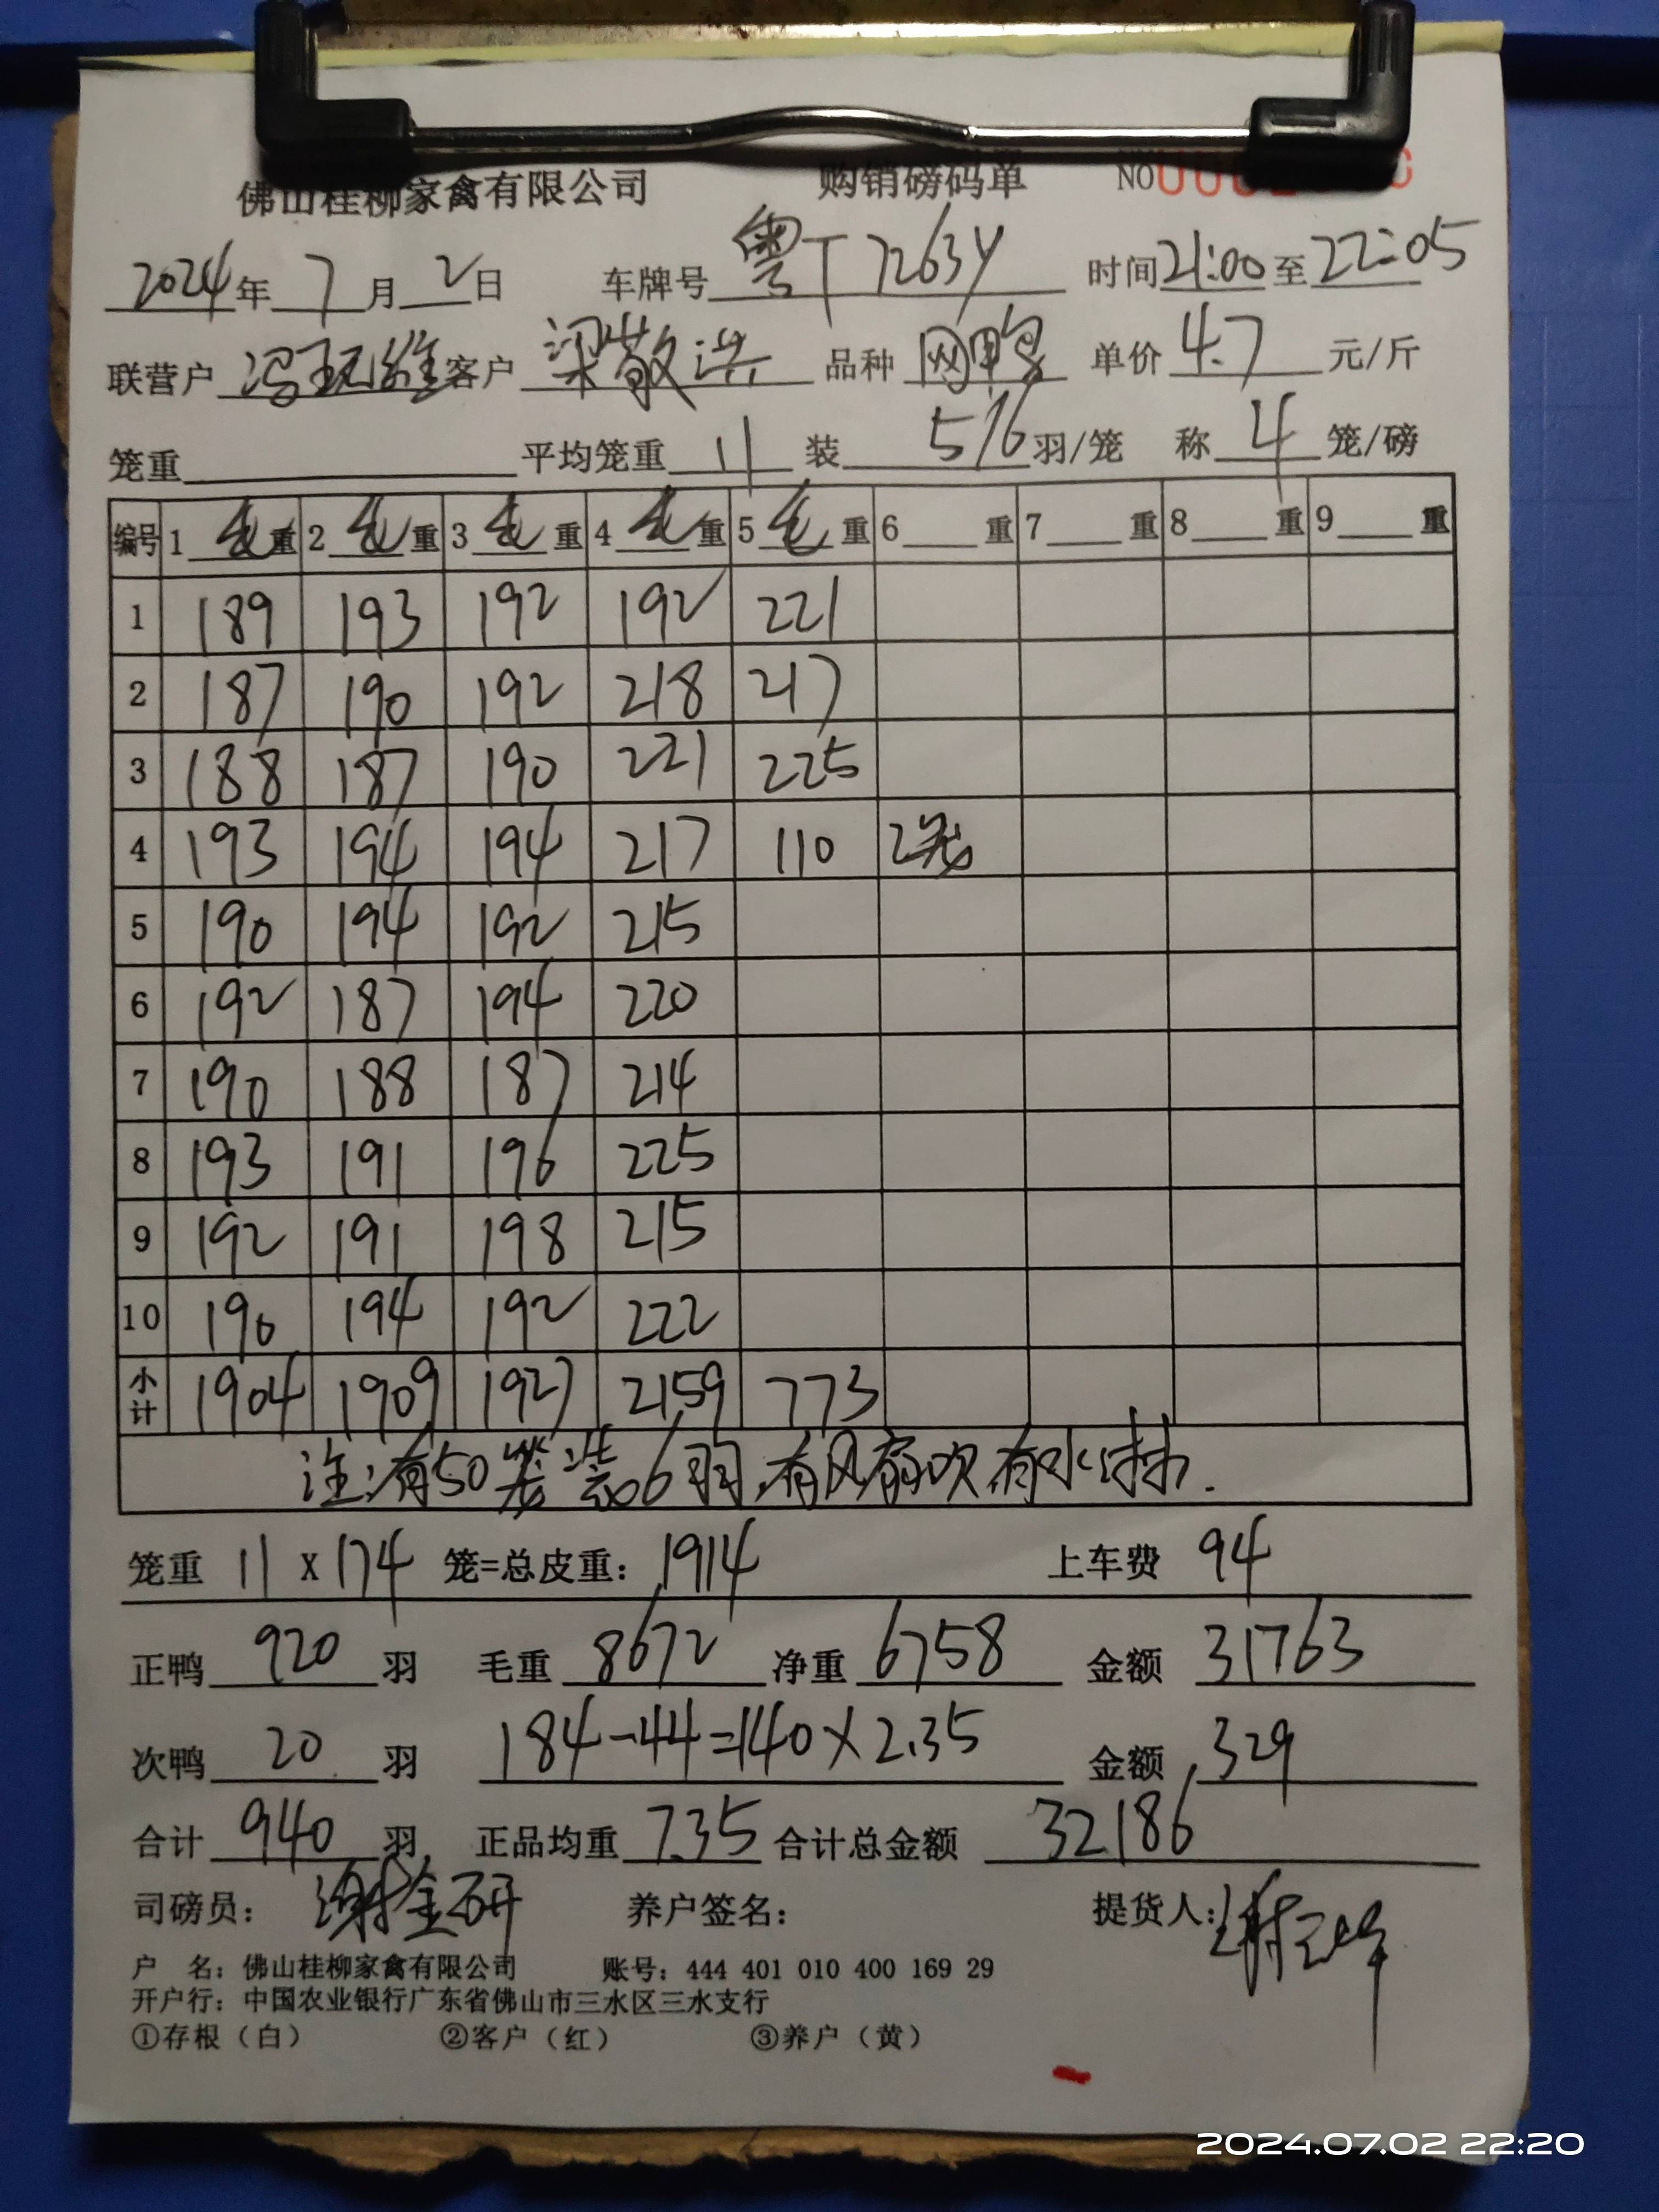 佛山桂柳家禽有限公司 购销磅码单 NO
2024年7月2日 车牌号粤T7263Y 时间21:00至22:05
联营户 冯 客户 梁敬洪 品种 网鸭 单价4.7元/斤
笼重 平均笼重11 装5/6羽/笼 称4笼/磅
编号 1毛重 2毛重 3毛重 4毛重 5毛重 6重 7重 8重 9重
1 189 193 192 192 221
2 187 190 192 218 217
3 188 187 190 221 225
4 193 194 194 217 110 2笼
5 190 194 192 215
6 192 187 194 220
7 190 188 187 214
8 193 191 196 225
9 192 191 198 215
10 190 194 192 222
小计 1904 1909 1927 2159 773
注:有50笼装6羽.有风扇吹有水淋.
笼重11x174笼=总皮重:1914 上车费94
正鸭920羽 毛重8672净重6758 金额31763
次鸭20羽 184-44=140×2.35 金额329
合计940羽 正品均重7.35合计总金额32186
司磅员:谢金研 养户签名: 提货人:谢
户 名:佛山桂柳家禽有限公司 账号:444 401 010 400 169 29
开户行:中国农业银行广东省佛山市三水区三水支行
①存根(白) ②客户(红) ③养户(黄)
2024.07.02 22:20